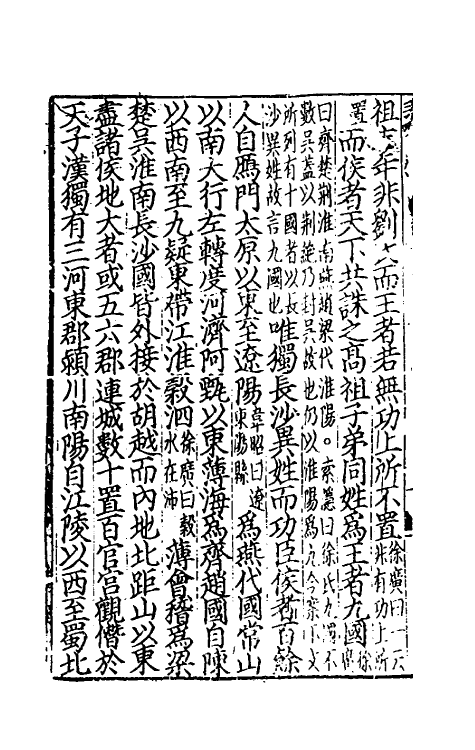 祖末年非劉氏而王者若無功上所不置徐廣曰一云非有功上所
置而侯者天下共誅之髙祖子弟同姓為王者九國徐
曰齊楚荆淮南燕趙梁代淮陽。索隱曰徐氏九國不
數吳蓋以荆絕乃封吳故也仍以淮陽為九今案下文
所列有十國者以長沙異姓故言九國也唯獨長沙異姓而功臣侯者百餘
人自鴈門太原以東至遼陽韋昭曰遼東陽縣為燕代國常山
以南大行左轉度河濟阿甄以東薄海為齊趙國自陳
以西南至九疑東帶江淮穀泗徐廣曰穀水在沛薄會稽為梁
楚吳淮南長沙國皆外接於胡越而內地北距山以東
盡諸侯地大者或五六郡連城數十置百官宮觀僭於
天子漢獨有三河東郡潁川南陽自江陵以西至蜀北